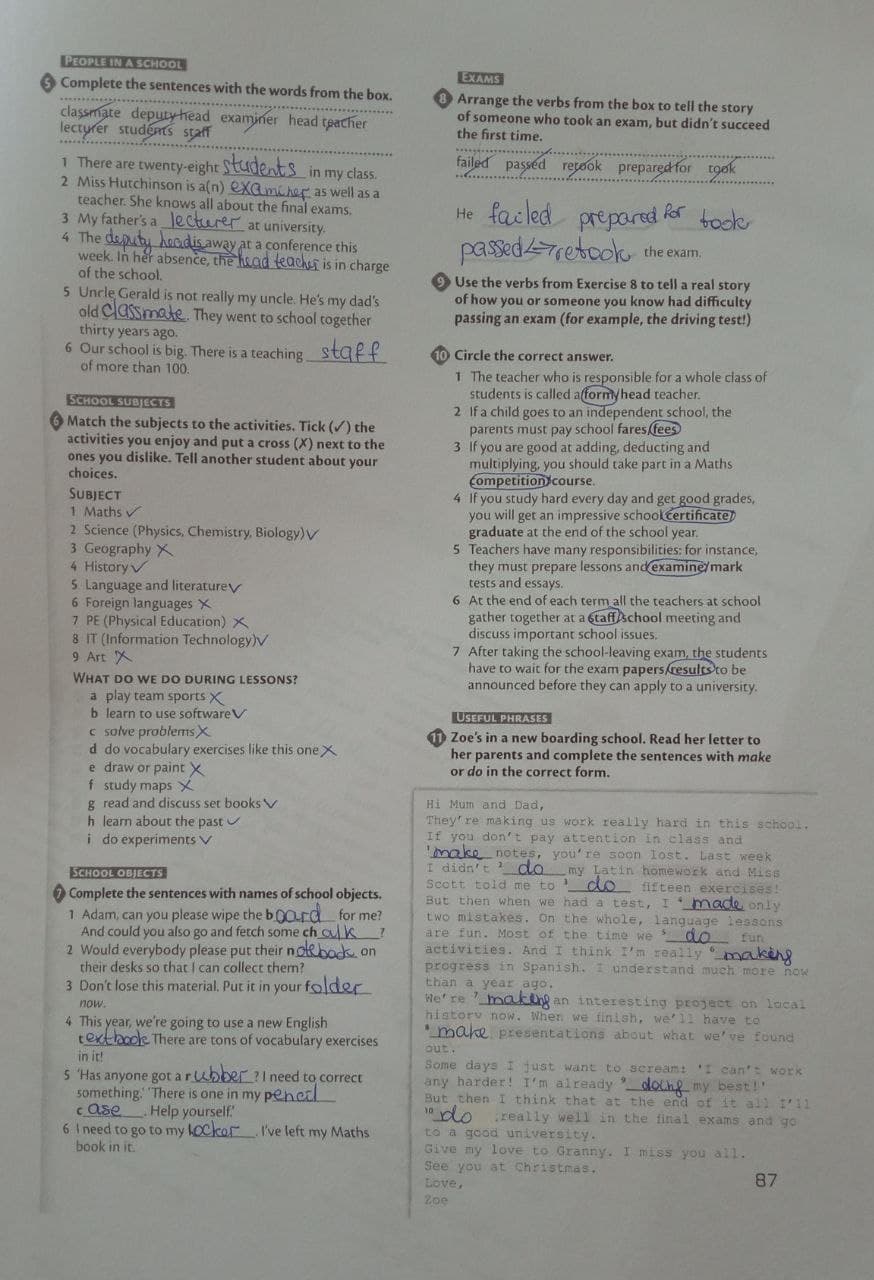 PEOPLE IN A SCHOOL
5 Complete the sentences with the words from the box.
classmate deputy head examiner head teacher
lecturer students staff
1 There are twenty-eight students in my class.
2 Miss Hutchinson is a(n) examiner as well as a
teacher. She knows all about the final exams.
3 My father's a lecturer at university.
4 The deputy head is away at a conference this
week. In her absence, the head teacher is in charge
of the school.
5 Uncle Gerald is not really my uncle. He's my dad's
old classmate. They went to school together
thirty years ago.
6 Our school is big. There is a teaching staff
of more than 100.
SCHOOL SUBJECTS
6 Match the subjects to the activities. Tick (✓) the
activities you enjoy and put a cross (✗) next to the
ones you dislike. Tell another student about your
choices.
SUBJECT
1 Maths ✓
2 Science (Physics, Chemistry, Biology) ✓
3 Geography ✗
4 History ✓
5 Language and literature ✓
6 Foreign languages ✗
7 PE (Physical Education) ✗
8 IT (Information Technology) ✓
9 Art ✗
WHAT DO WE DO DURING LESSONS?
a play team sports ✗
b learn to use software ✓
c solve problems ✗
d do vocabulary exercises like this one ✗
e draw or paint ✗
f study maps ✗
g read and discuss set books ✓
h learn about the past ✓
i do experiments ✓
SCHOOL OBJECTS
7 Complete the sentences with names of school objects.
1 Adam, can you please wipe the board for me?
And could you also go and fetch some chalk?
2 Would everybody please put their notebook on
their desks so that I can collect them?
3 Don't lose this material. Put it in your folder
now.
4 This year, we're going to use a new English
textbook. There are tons of vocabulary exercises
in it!
5 'Has anyone got a rubber? I need to correct
something.' 'There is one in my pencil
case. Help yourself.'
6 I need to go to my locker. I've left my Maths
book in it.
EXAMS
8 Arrange the verbs from the box to tell the story
of someone who took an exam, but didn't succeed
the first time.
failed passed retook prepared for took
He failed prepared for took
passed ↔ retook the exam.
9 Use the verbs from Exercise 8 to tell a real story
of how you or someone you know had difficulty
passing an exam (for example, the driving test!)
10 Circle the correct answer.
1 The teacher who is responsible for a whole class of
students is called a form/head teacher.
2 If a child goes to an independent school, the
parents must pay school fares/fees
3 If you are good at adding, deducting and
multiplying, you should take part in a Maths
competition/course.
4 If you study hard every day and get good grades,
you will get an impressive school certificate/
graduate at the end of the school year.
5 Teachers have many responsibilities: for instance,
they must prepare lessons and examine/mark
tests and essays.
6 At the end of each term all the teachers at school
gather together at a staff/school meeting and
discuss important school issues.
7 After taking the school-leaving exam, the students
have to wait for the exam papers/results to be
announced before they can apply to a university.
USEFUL PHRASES
11 Zoe's in a new boarding school. Read her letter to
her parents and complete the sentences with make
or do in the correct form.
Hi Mum and Dad,
They're making us work really hard in this school.
If you don't pay attention in class and
1 make notes, you're soon lost. Last week
I didn't 2 do my Latin homework and Miss
Scott told me to 3 do fifteen exercises!
But then when we had a test, I 4 made only
two mistakes. On the whole, language lessons
are fun. Most of the time we 5 do fun
activities. And I think I'm really 6 making
progress in Spanish. I understand much more now
than a year ago.
We're 7 making an interesting project on local
history now. When we finish, we'll have to
8 make presentations about what we've found
out.
Some days I just want to scream: 'I can't work
any harder! I'm already 9 doing my best!'
But then I think that at the end of it all I'll
10 do really well in the final exams and go
to a good university.
Give my love to Granny. I miss you all.
See you at Christmas.
Love,
Zoe
87